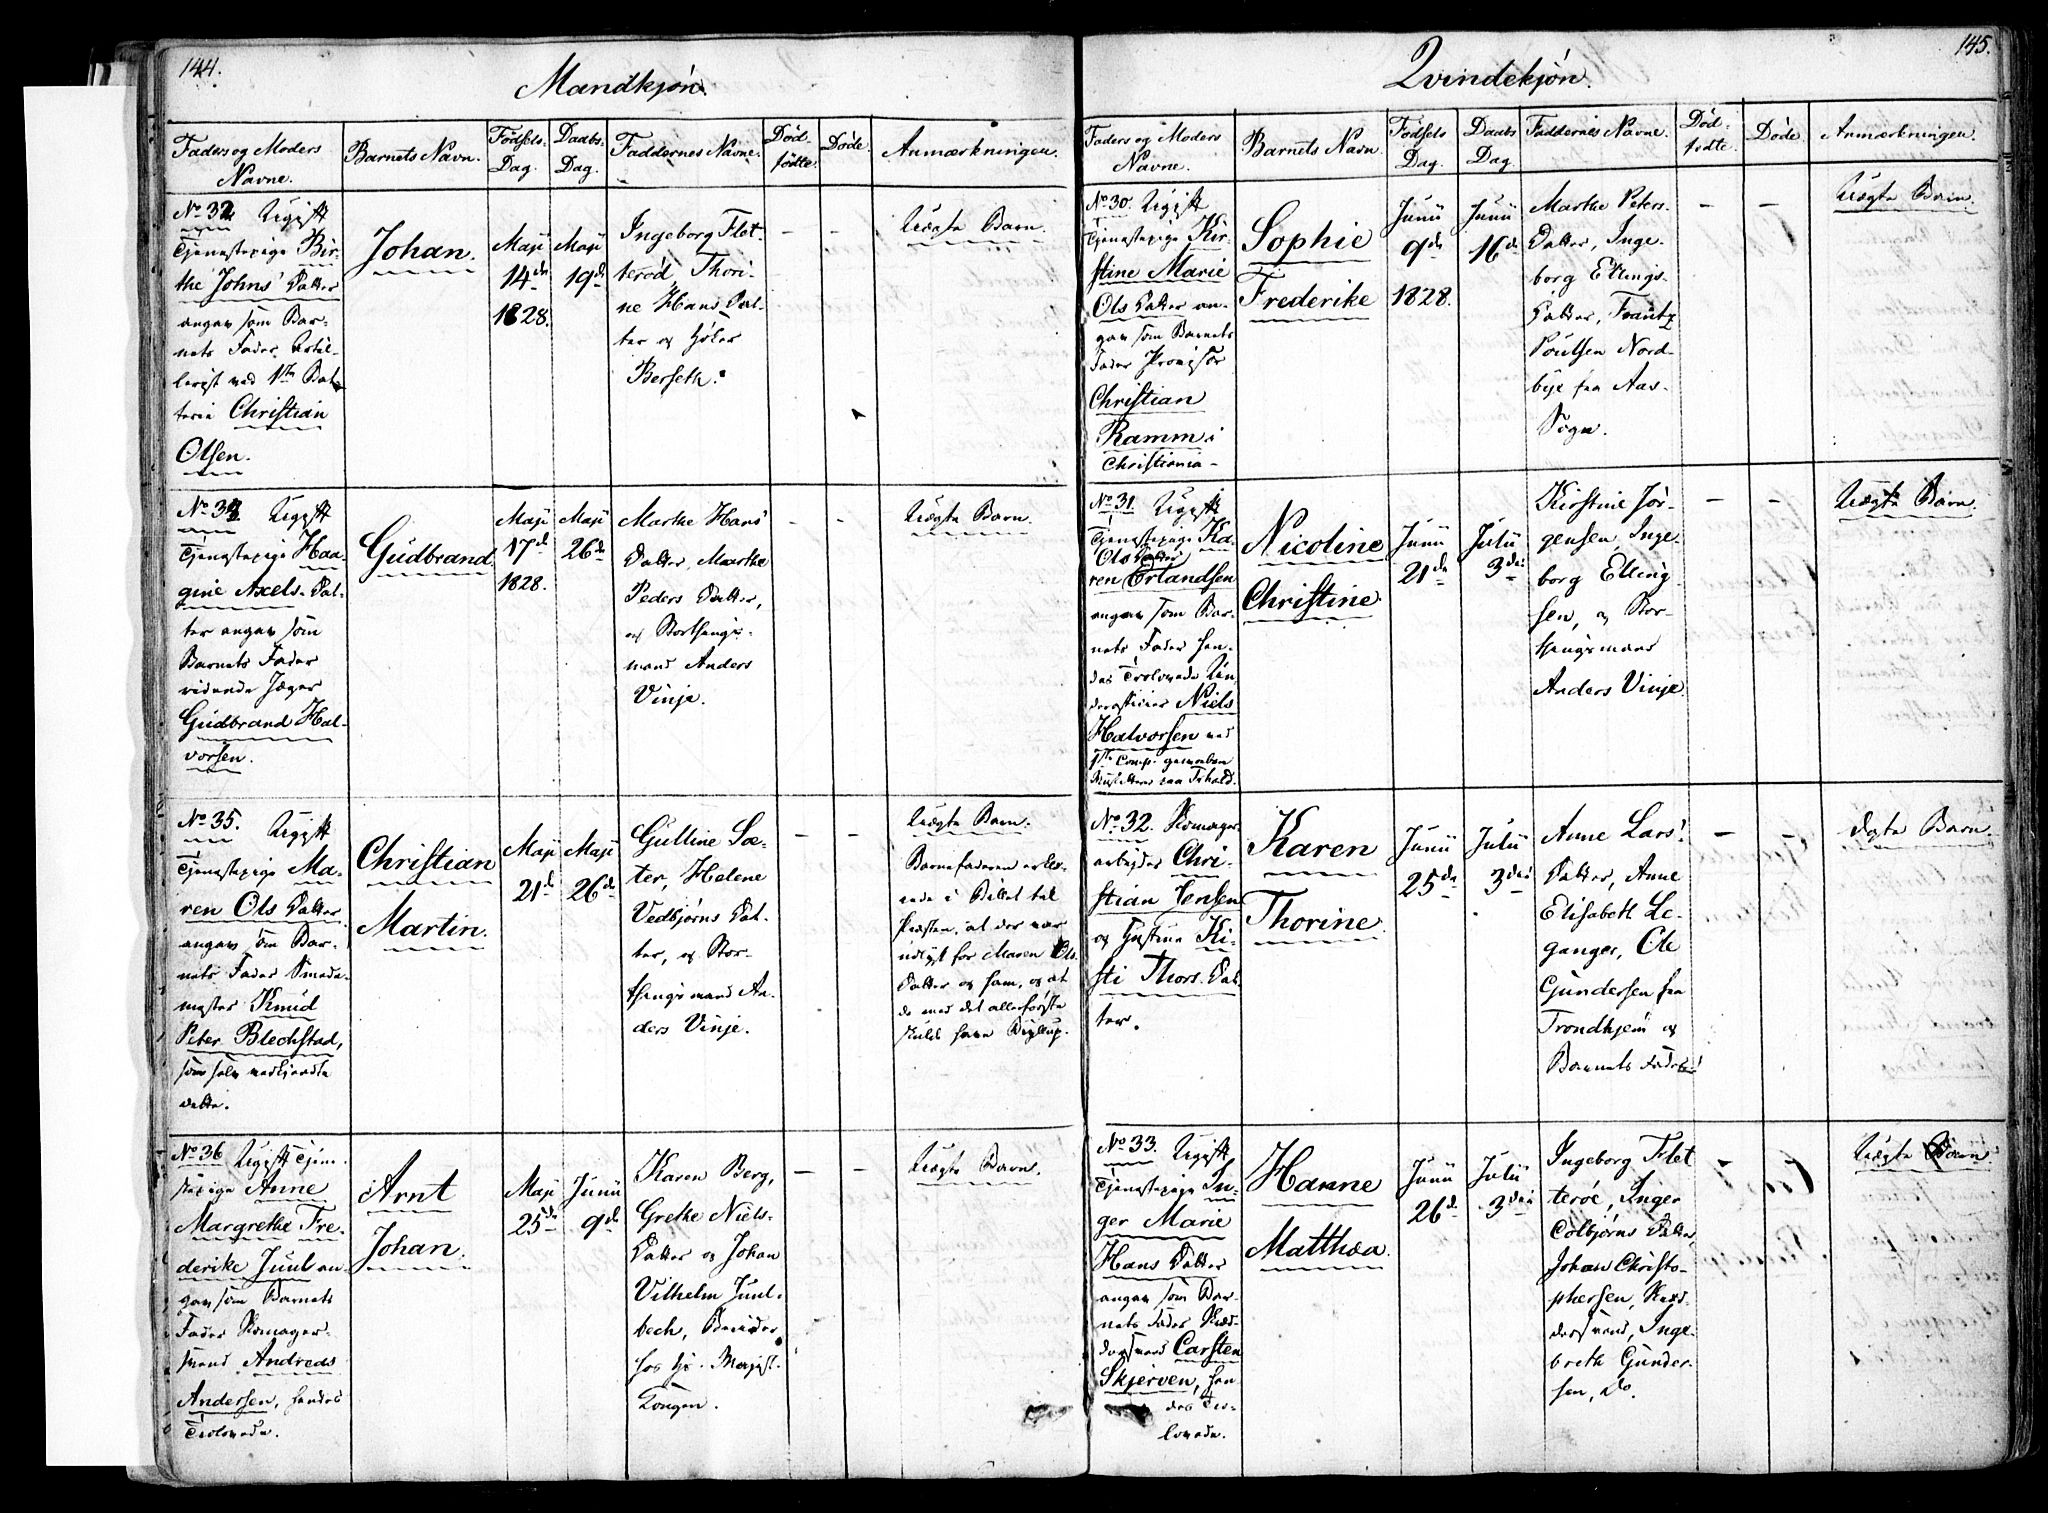 144.
Mandkjøn.
Faders og Moders
Navne.
Barnets Navn.
Fødsels-
Dag.
Daabs-
Dag.
Faddernes Navne.
Død-
fødte.
Døde.
Anmærkningen.
No 32. Ugift
Tjenestepige Bir-
the Johns' Datter
angav som Bar-
nets Fader, Artil-
lerist ved 1ste Bat-
terie Christian
Olsen.
Johan.
Maji
14de
1828.
Maji
19de
Ingeborg Flet-
terød, Thori-
ne Hans Dat-
ter og
Berseth.
-
-
Uægte Barn.
No 33 Ugift
Tjenestepige Haa-
gine Axels-Dat-
ter angav som
Barnets Fader
ridende Jæger
Gudbrand Hal-
vorsen.
Gudbrand.
Maji
17de
1828.
Maji
26de
Marthe Hans'
Datter, Marthe
Peders Datter,
og Storthings-
mand Anders
Vinje.
-
-
Uægte Barn.
No 35. Ugift
Tjenestepige Ma-
ren Ols Datter
angav som Bar-
nets Fader Smede-
mester Knud
Peter Blechstad,
som selv vedkjendte
dette.
Christian
Martin.
Maji
21de
Maji
26de
Gulline Sæ-
ter, Helene
Vedbjørns Dat-
ter, og Stor-
thingsmand An-
ders Vinje.
-
-
Uægte Barn.
Barnefaderen erklæ-
rede i Billet til
Præsten, at der var
udlyst for Maren Ols
Datter og ham, og at
de med det allerførste
skulde have Bryllup.
No 36 Ugift Tjene-
stepige Anne
Margrethe Fre-
derike Juul an-
gav som Barnets
Fader Skomager-
svend Andreas
Andersen, hendes
Trolovede.
Arnt
Johan.
Maji
25de
Junii
9de
Karen Berg,
Grethe Niels-
Datter og Johan
Vilhelm Juul-
bech, Bereider
hos Hs. Majest.
Kongen.
-
-
Uægte Barn.
145.
Qvindekjøn.
Faders og Moders
Navne.
Barnets Navn.
Fødsels
Dag.
Daabs
Dag.
Faddernes Navne.
Død-
fødte.
Døde.
Anmærkningen
No 30. Ugift
Tjenestepige Kir-
stine Marie
Ols Datter an-
gav som Barnets
Fader Provisor
Christian
Ramm i
Christiania-
Sophie
Frederike
Junii
9de
1828.
Junii
16de
Marthe Peters-
Datter, Inge-
borg Ellings-
Datter, Frantz
Poulsen Nord-
bye fra Aas-
Sogn.
-
-
Uægte Barn.
No 31. Ugift
Tjenestepige Ka-
Ols Datter
ren Erlandsen
angav som Bar-
nets Fader hen-
des Trolovede Un-
derofficier Niels
Halvorsen ved
1ste Comp. geworbne
Nicoline
Christine.
Junii
21de
Julii
3die
Kirstine Jør-
gensen, Inge-
borg Elling-
sen, og Stor-
thingsmand
Anders Vinje.
-
-
Uægte Barn.
No 32. Skomager-
arbejder Chri-
stian Jensen
og Hustrue Ki-
sti Thors-Dat-
ter.
Karen
Thorine.
Junii
25de
Julii
3die
Anne Lars'
Datter, Anne
Elisabeth Le-
ganger, Ole
Gundersen fra
Trondhjem og
Barnets Fader!
-
-
Ægte Barn.
No 33. Ugift
Tjenestepige In-
ger Marie
Hans Datter
angav som Bar-
nets Fader Skræd-
dersvend Carsten
Skjerven, hen-
des Tro-
lovede.
Hanne
Matthea.
Junii
26de
Julii
3die
Ingeborg Flet
terøe, Inger
Colbjørns Datter,
Johan Christo-
phersen, Skræd-
dersvend, Inge-
breth Gunder-
sen, do.
-
-
Uægte Barn.